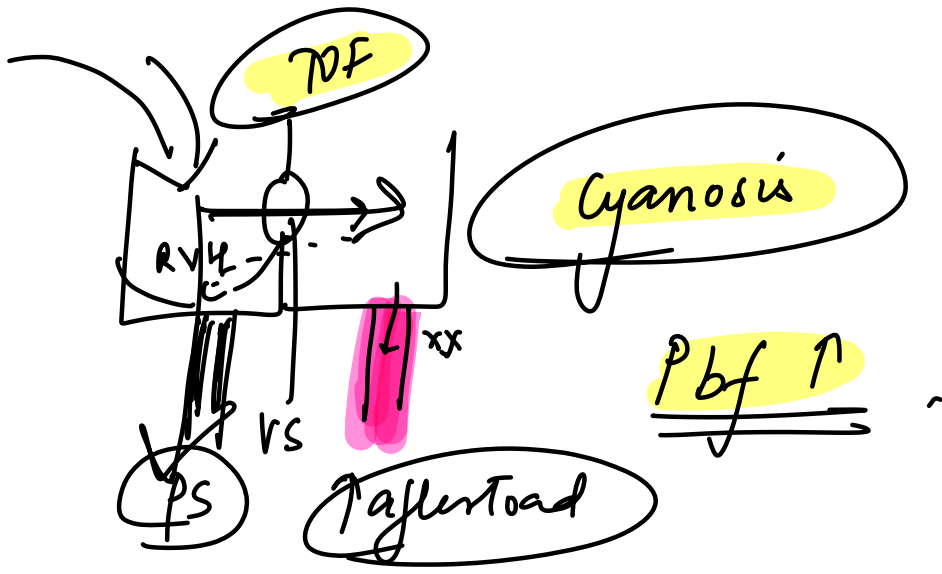 TOF
Cyanosis
RVH
xx
Pbf ↑
VS
PS
↑ afterload